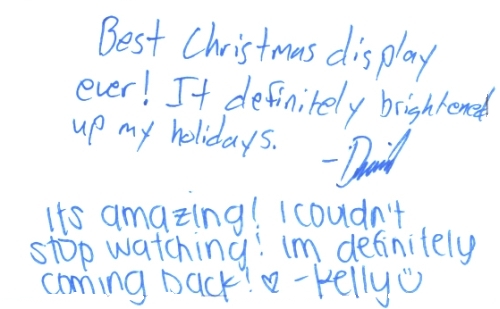 Best Christmas display
ever! It definitely brightened
up my holidays.
-David
Its amazing! I coudn't
stop watching! Im definitely
coming back! ♡ -Kelly☺